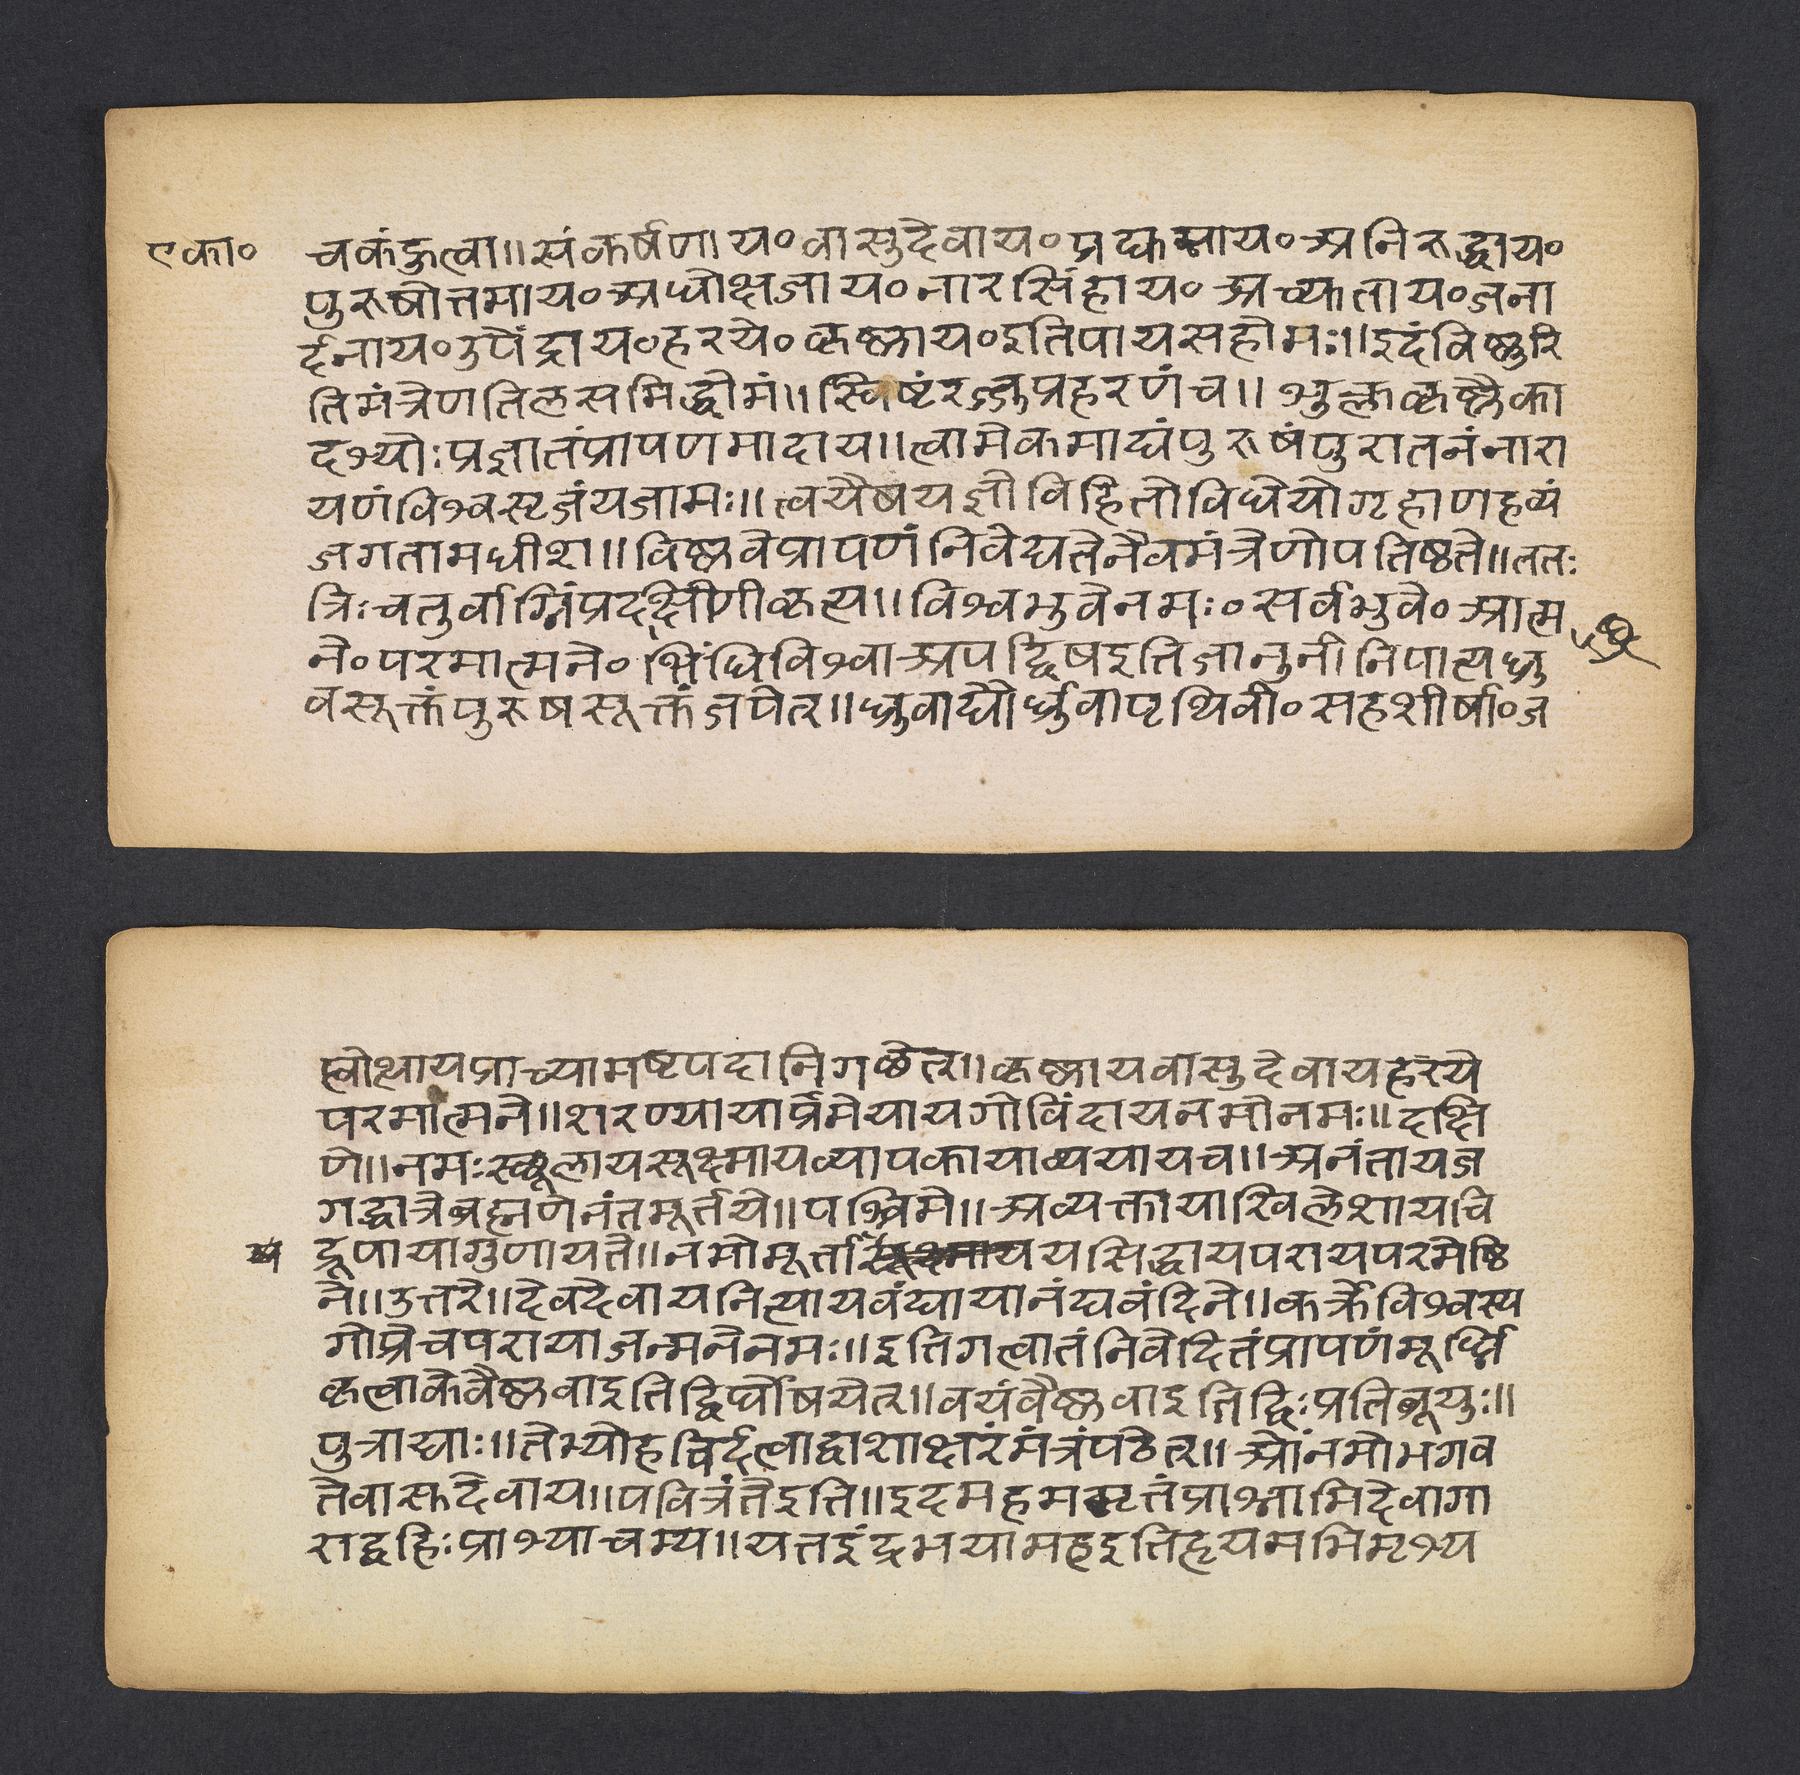 एका॰
चकंहुत्वा॥संकर्षणाय॰वासुदेवाय॰प्रद्युम्नाय॰अनिरुद्धाय॰
पुरुषोत्तमाय॰अधोक्षजाय॰नारसिंहाय॰अच्युताय॰जना
र्दनाय॰उपेंद्राय॰हरये॰कृष्णाय॰इतिपायसहोमः॥इदंविष्णुरि
तिमंत्रेणतिलसमिद्धोमं॥स्विष्टंरज्जुप्रहरणंच॥शुक्लकृष्णैका
दश्योःप्रज्ञातंप्रापणमादाय॥त्वामेकमाद्यंपुरुषंपुरातनंनारा
यणंविश्वसृजंयजामः॥त्वयैषयज्ञोविहितोविधेयोगृहाणहव्यं
जगतामधीश॥विष्णवेप्रापणंनिवेद्यतेनैवमंत्रेणोपतिष्ठते॥ततः
त्रिःचतुर्वाग्निंप्रदक्षिणीकृत्य॥विश्वभुवेनमः॰सर्वभुवे॰आत्म
ने॰परमात्मने॰भिंधिविश्वाअपद्विषइतिजानुनीनिपात्यध्रु
वसूक्तंपुरुषसूक्तंजपेत्॥ध्रुवाद्यौर्ध्रुवापृथिवी॰सहशीर्षा॰ज
प्त्वोत्थायप्राच्यामष्टपदानिगछेत्॥कृष्णायवासुदेवायहरये
परमात्मने॥शरण्यायाप्रमेयायगोविंदायनमोनमः॥दक्षि
णे॥नमःस्थूलायसूक्ष्मायव्यापकायाव्ययायच॥अनंतायज
गद्धात्रेब्रह्मणेनंतमूर्तये॥पश्चिमे॥अव्यक्तायाखिलेशायचि
द्रूपायागुणायते॥नमोमूर्तायसिद्धायपरायपरमेष्ठि
ने॥उत्तरे॥देवदेवायनित्यायवंद्यायानंद्यवंदिने॥कर्त्रेविश्वस्य
गोप्त्रेचपरायाजन्मनेनमः॥इतिगत्वातंनिवेदितंप्रापणंमूर्ध्नि
कृत्वाकेवैष्णवाइतिद्विर्घोषयेत्॥वयंवैष्णवाइतिद्विःप्रतिब्रूयुः॥
पुत्राद्याः॥तेभ्योहविर्दत्वाद्वाशाक्षरंमंत्रंपठेत्॥ओंनमोभगव
तेवासुदेवाय॥पवित्रंतेइति॥इदमहममृतंप्राश्नामिदेवागा
राद्बहिःप्राश्याचम्य॥यत्तइंद्रभयामहइतिहृयमभिमृश्य